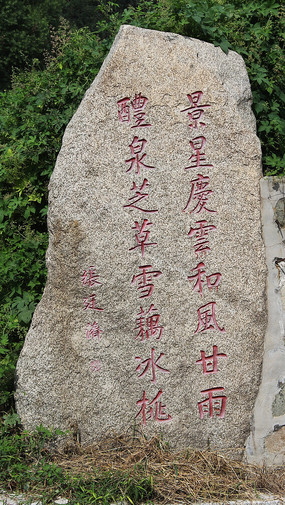 景星慶雲和風甘雨
醴泉芝草雪藕冰桃